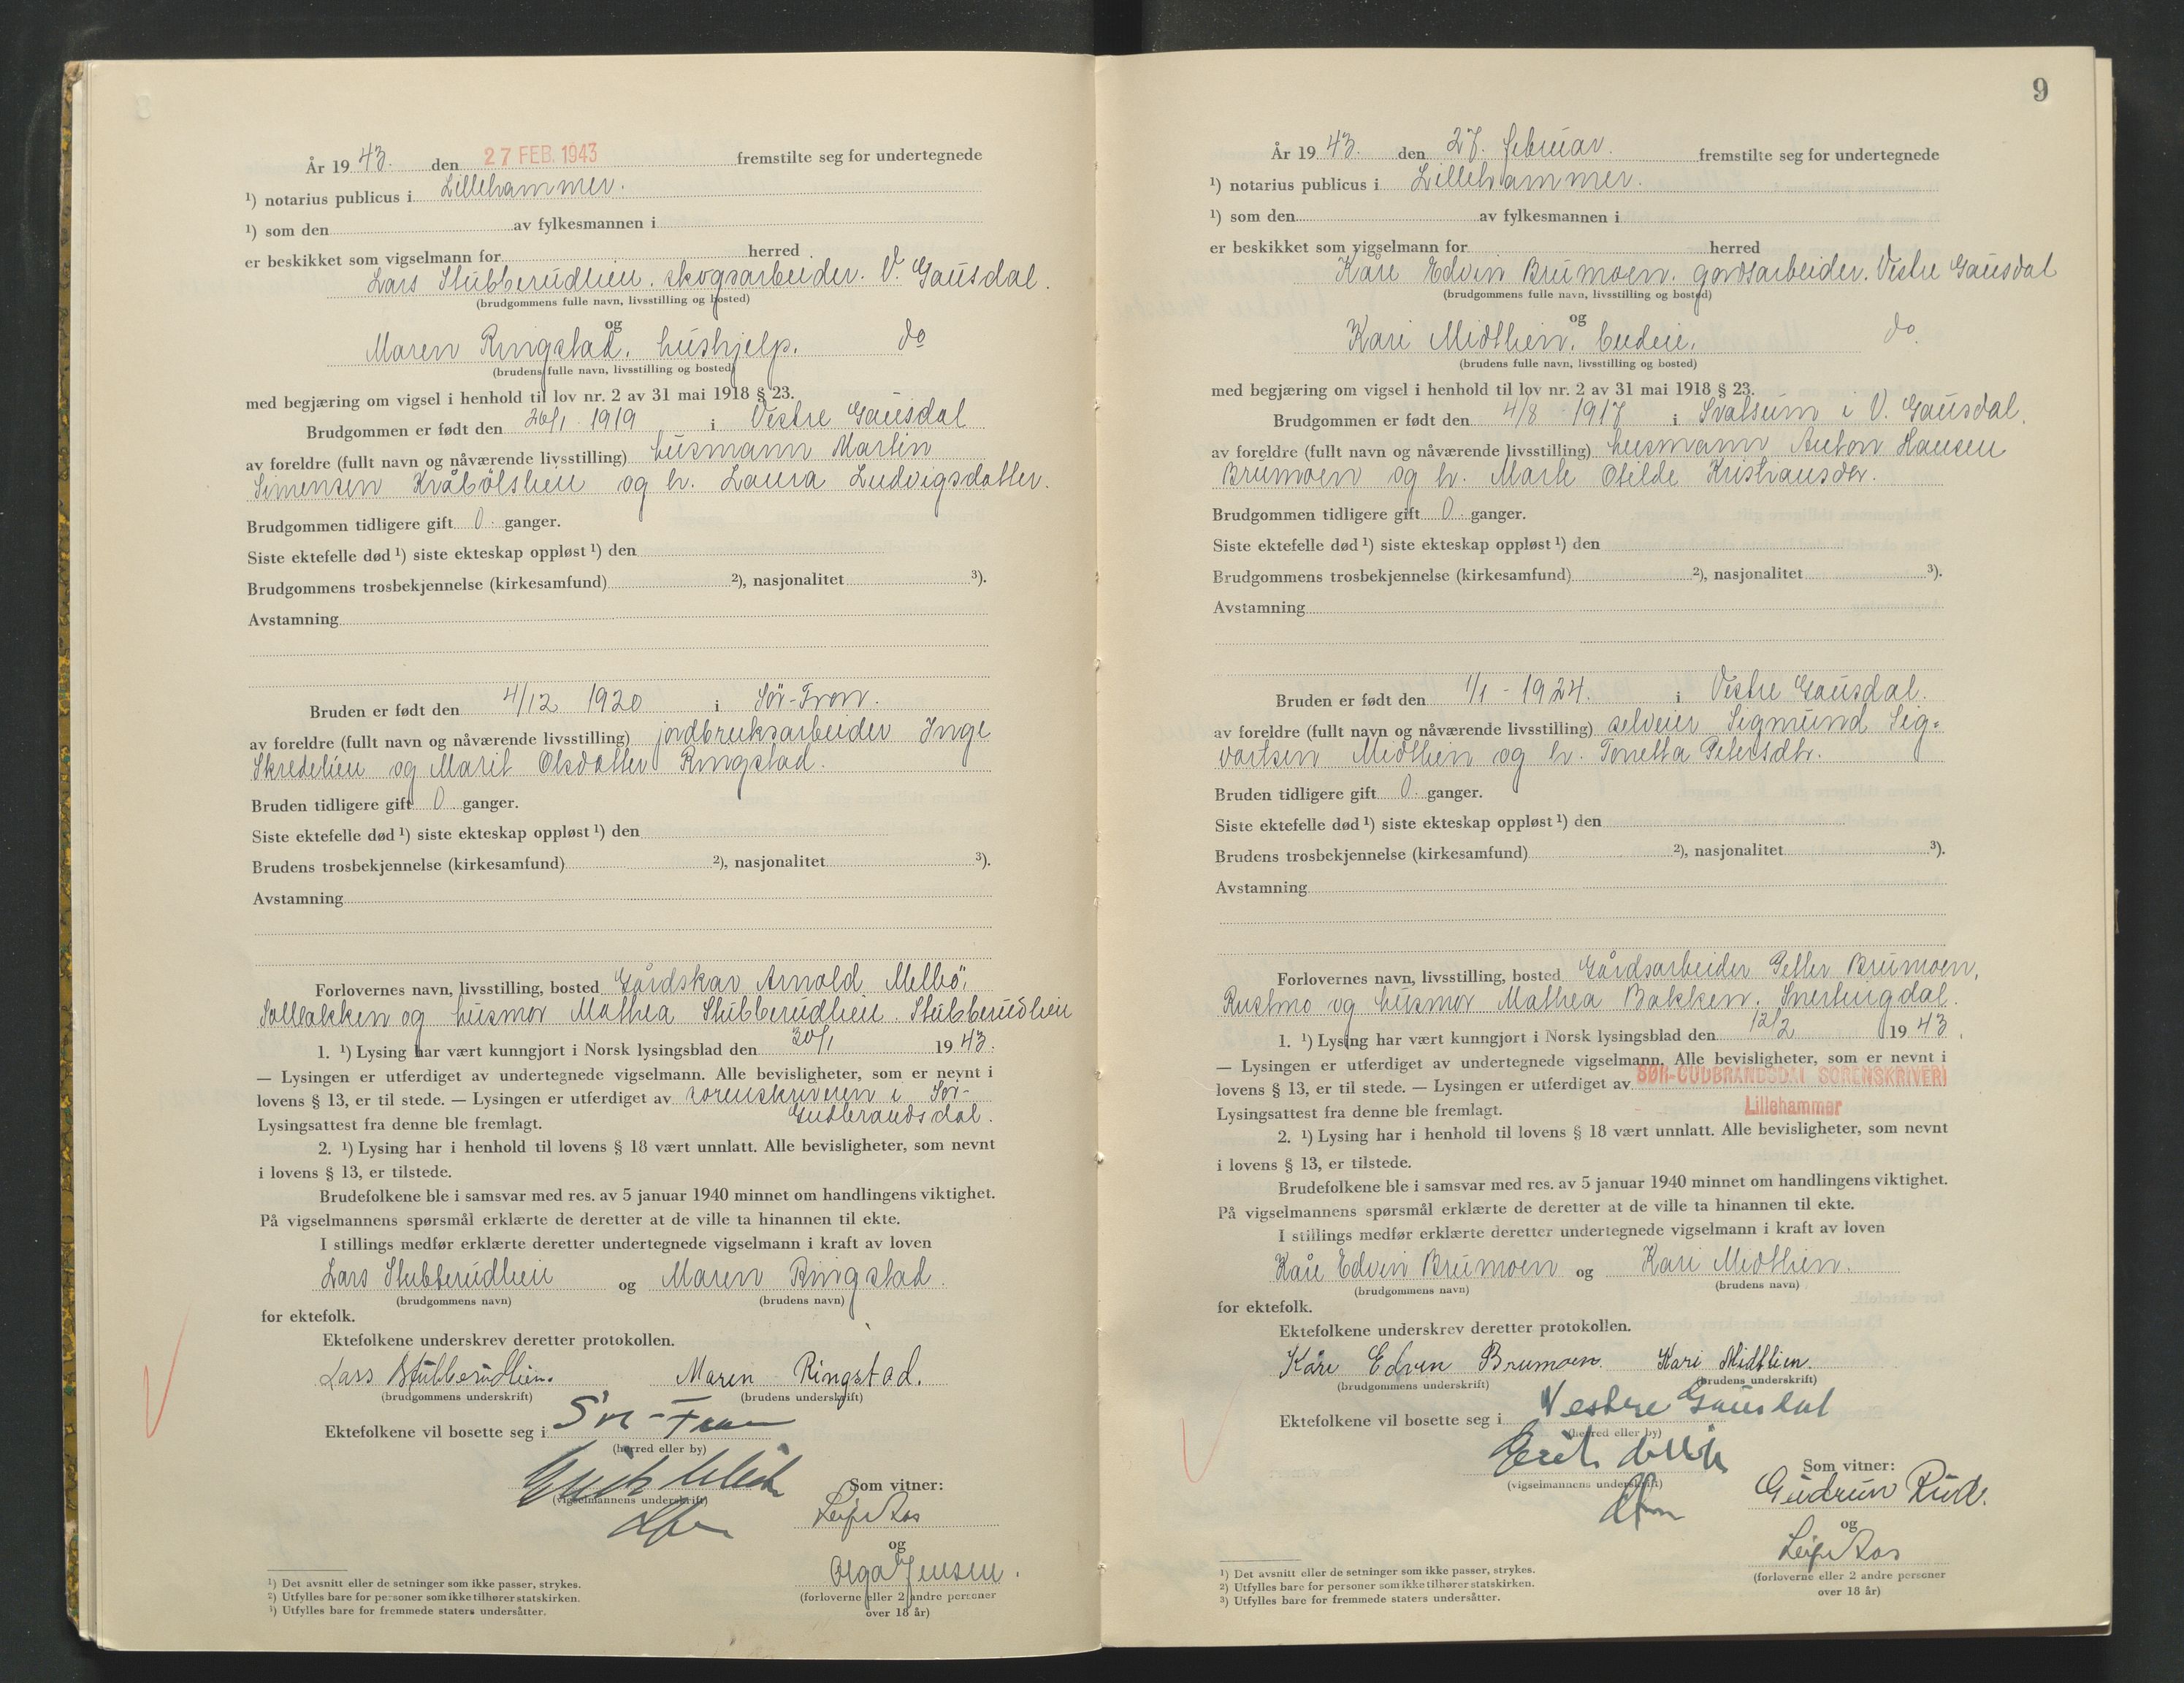 År 19 43. den 27 FEB. 1943 fremstilte seg for undertegnede
¹) notarius publicus i Lillehammer.
¹) som den av fylkesmannen i
er beskikket som vigselmann for herred
Lars Stubberudlien. skogsarbeider. V. Gausdal.
(brudgommens fulle navn, livsstilling og bosted)
og
Maren Ringstad, hushjelp. do
(brudens fulle navn, livsstilling og bosted)
med begjæring om vigsel i henhold til lov nr. 2 av 31 mai 1918 § 23.
Brudgommen er født den 26/1 1919 i Vestre Gausdal
av foreldre (fullt navn og nåværende livsstilling) husmann Martin
Simensen Kråbölslien og h. Laura Ludvigsdatter.
Brudgommen tidligere gift 0. ganger.
Siste ektefelle død ¹) siste ekteskap oppløst ¹) den
Brudgommens trosbekjennelse (kirkesamfund) ²), nasjonalitet ³).
Avstamning
Bruden er født den 4/12 1920 i Sör-Fron.
av foreldre (fullt navn og nåværende livsstilling) jordbruksarbeider Inge
Skredelien og Marit Olsdatter Ringstad.
Bruden tidligere gift 0. ganger.
Siste ektefelle død ¹) siste ekteskap oppløst ¹) den
Brudens trosbekjennelse (kirkesamfund) ²), nasjonalitet ³).
Avstamning
Forlovernes navn, livsstilling, bosted Gårdskar Arnold Melbö,
Solbakken og husmor Mathea Stubberudlien. Stubberudlien
1. ¹) Lysing har vært kunngjort i Norsk lysingsblad den 30/1 19 43.
— Lysingen er utferdiget av undertegnede vigselmann. Alle bevisligheter, som er nevnt i
lovens § 13, er til stede. — Lysingen er utferdiget av sorenskriveren i Sör-
Gudbrandsdal.
Lysingsattest fra denne ble fremlagt.
2. ¹) Lysing har i henhold til lovens § 18 vært unnlatt. Alle bevisligheter, som nevnt
i lovens § 13, er tilstede.
Brudefolkene ble i samsvar med res. av 5 januar 1940 minnet om handlingens viktighet.
På vigselmannens spørsmål erklærte de deretter at de ville ta hinannen til ekte.
I stillings medfør erklærte deretter undertegnede vigselmann i kraft av loven
Lars Stubberudlien og Maren Ringstad.
(brudgommens navn) (brudens navn)
for ektefolk.
Ektefolkene underskrev deretter protokollen.
Lars Stubberudlien. Maren Ringstad.
(brudgommens underskrift) (brudens underskrift)
Ektefolkene vil bosette seg i Sør-Fron
(herred eller by)
(vigselmannens underskrift)
Som vitner:
Leif Aas
og
Olga Jensen.
(forloverne eller 2 andre personer
over 18 år)
¹) Det avsnitt eller de setninger som ikke passer, strykes.
²) Utfylles bare for personer som ikke tilhører statskirken.
³) Utfylles bare for fremmede staters undersåtter.
9
År 19 43. den 27. februar. fremstilte seg for undertegnede
¹) notarius publicus i Lillehammer.
¹) som den av fylkesmannen i
er beskikket som vigselmann for herred
Kåre Edvin Brumoen. gårdsarbeider. Vestre Gausdal
(brudgommens fulle navn, livsstilling og bosted)
og
Kari Midtlien, budeie. do.
(brudens fulle navn, livsstilling og bosted)
med begjæring om vigsel i henhold til lov nr. 2 av 31 mai 1918 § 23.
Brudgommen er født den 4/8 1917 i Svatsum i V. Gausdal.
av foreldre (fullt navn og nåværende livsstilling) husmann Anton Hansen
Brumoen og h. Marte Otilde Kristiansdtr.
Brudgommen tidligere gift 0. ganger.
Siste ektefelle død ¹) siste ekteskap oppløst ¹) den
Brudgommens trosbekjennelse (kirkesamfund) ²), nasjonalitet ³).
Avstamning
Bruden er født den 1/1 - 1924. i Vestre Gausdal.
av foreldre (fullt navn og nåværende livsstilling) selveier Sigmund Sig=
vartsen Midtlien og h. Tonetta Petersdtr.
Bruden tidligere gift 0. ganger.
Siste ektefelle død ¹) siste ekteskap oppløst ¹) den
Brudens trosbekjennelse (kirkesamfund) ²), nasjonalitet ³).
Avstamning
Forlovernes navn, livsstilling, bosted Gårdsarbeider Petter Brumoen,
Rustmo og husmor Mathea Bakken. Snertingdal.
1. ¹) Lysing har vært kunngjort i Norsk lysingsblad den 12/2 19 43.
— Lysingen er utferdiget av undertegnede vigselmann. Alle bevisligheter, som er nevnt i
lovens § 13, er til stede. — Lysingen er utferdiget av SØR-GUDBRANDSDAL SORENSKRIVERI
Lillehammer
Lysingsattest fra denne ble fremlagt.
2. ¹) Lysing har i henhold til lovens § 18 vært unnlatt. Alle bevisligheter, som nevnt
i lovens § 13, er tilstede.
Brudefolkene ble i samsvar med res. av 5 januar 1940 minnet om handlingens viktighet.
På vigselmannens spørsmål erklærte de deretter at de ville ta hinannen til ekte.
I stillings medfør erklærte deretter undertegnede vigselmann i kraft av loven
Kåre Edvin Brumoen og Kari Midtlien.
(brudgommens navn) (brudens navn)
for ektefolk.
Ektefolkene underskrev deretter protokollen.
Kåre Edvin Brumoen. Kari Midtlien.
(brudgommens underskrift) (brudens underskrift)
Ektefolkene vil bosette seg i Vestre Gausdal
(herred eller by)
(vigselmannens underskrift)
Som vitner:
Gudrun Rud.
og
Leif Aas
(forloverne eller 2 andre personer
over 18 år)
¹) Det avsnitt eller de setninger som ikke passer, strykes.
²) Utfylles bare for personer som ikke tilhører statskirken.
³) Utfylles bare for fremmede staters undersåtter.